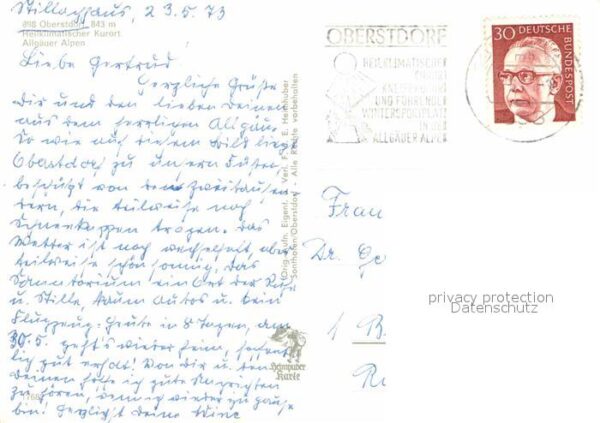 Stillachhaus, 23.5.73
898 Oberstdorf 843 m
Heilklimatischer Kurort
Allgäuer Alpen
Liebe Gertrud
Herzliche Grüße
Dir und den lieben Deinen
aus dem herrlichen Allgäu.
So wie auf diesem Bild liegt
Oberstdorf zu unsern Füßen,
beschützt von den Zweitausen-
dern, die teilweise noch
Schneekappen tragen. Das
Wetter ist noch wechselhaft, aber
teilweise schön sonnig, das
Sanatorium ein Ort der Ruhe
u. Stille, kaum Autos u. kein
Flugzeug. Heute in 8 Tagen, am
30.5. geht's wieder heim, hoffent-
lich gut erholt! Von Dir u. den
Deinen hoffe ich gute Nachrichten
zu hören, wenn ich wieder zu Hause
bin! Herzlichst Deine
Orig.-Aufn. Eigent. u. Verl. F. u. E. Heimhuber
Sonthofen/Oberstdorf - Alle Rechte vorbehalten
Heimhuber
Karte
OBERSTDORF
HEILKLIMATISCHER
KURORT
KNEIPPKURORT
UND FÜHRENDER
WINTERSPORTPLATZ
IN DEN
ALLGÄUER ALPEN
30 DEUTSCHE
BUNDESPOST
Frau
Dr. Ge
1 B
privacy protection
Datenschutz